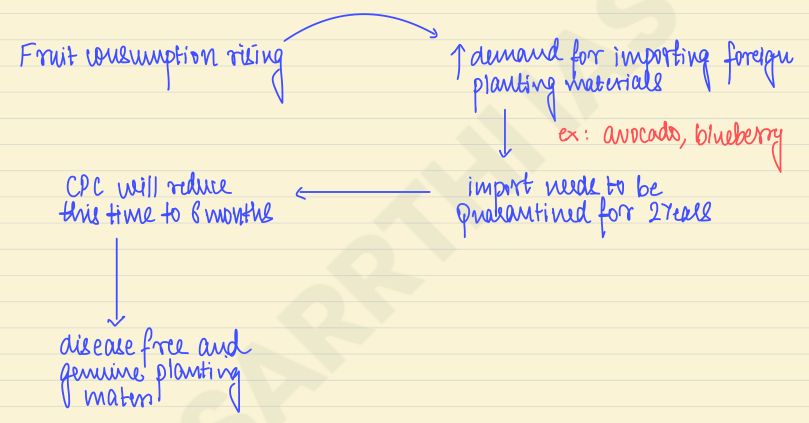 Fruit consumption rising
↑ demand for importing foreign
planting materials
ex: avocado, blueberry
import needs to be
Quarantined for 2 Years
CPC will reduce
this time to 6 months
disease free and
genuine planting
mater
SARRTHI IAS